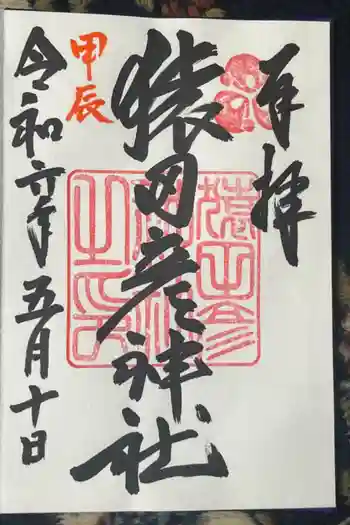 奉拝
猿田彦神社
甲辰
令和六年五月十日